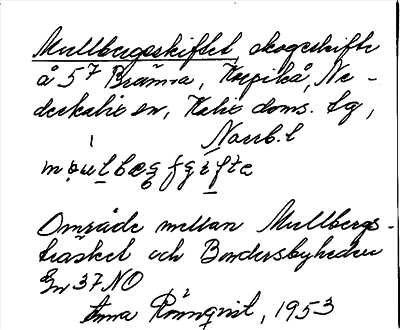 Mullbergsskiftet, skogsskifte
å 5⁷ Brännna, Korpikå, Ne-
derkalix sn, Kalix doms. tg,
Norrb. l
Område mellan Mullbergs-
träsket och Bondersbyheden
Gn 37 NO
Anna Rönnqvist, 1953